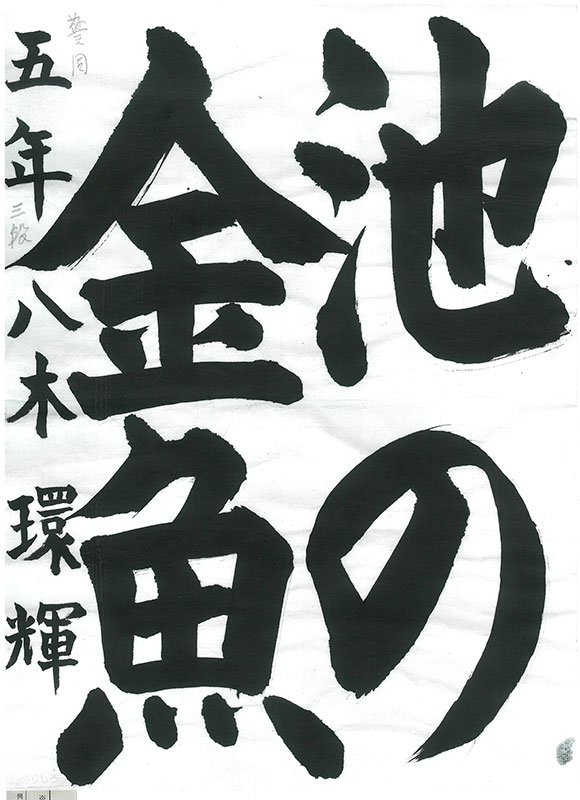 池の
金魚
五年 三段 八木 環輝